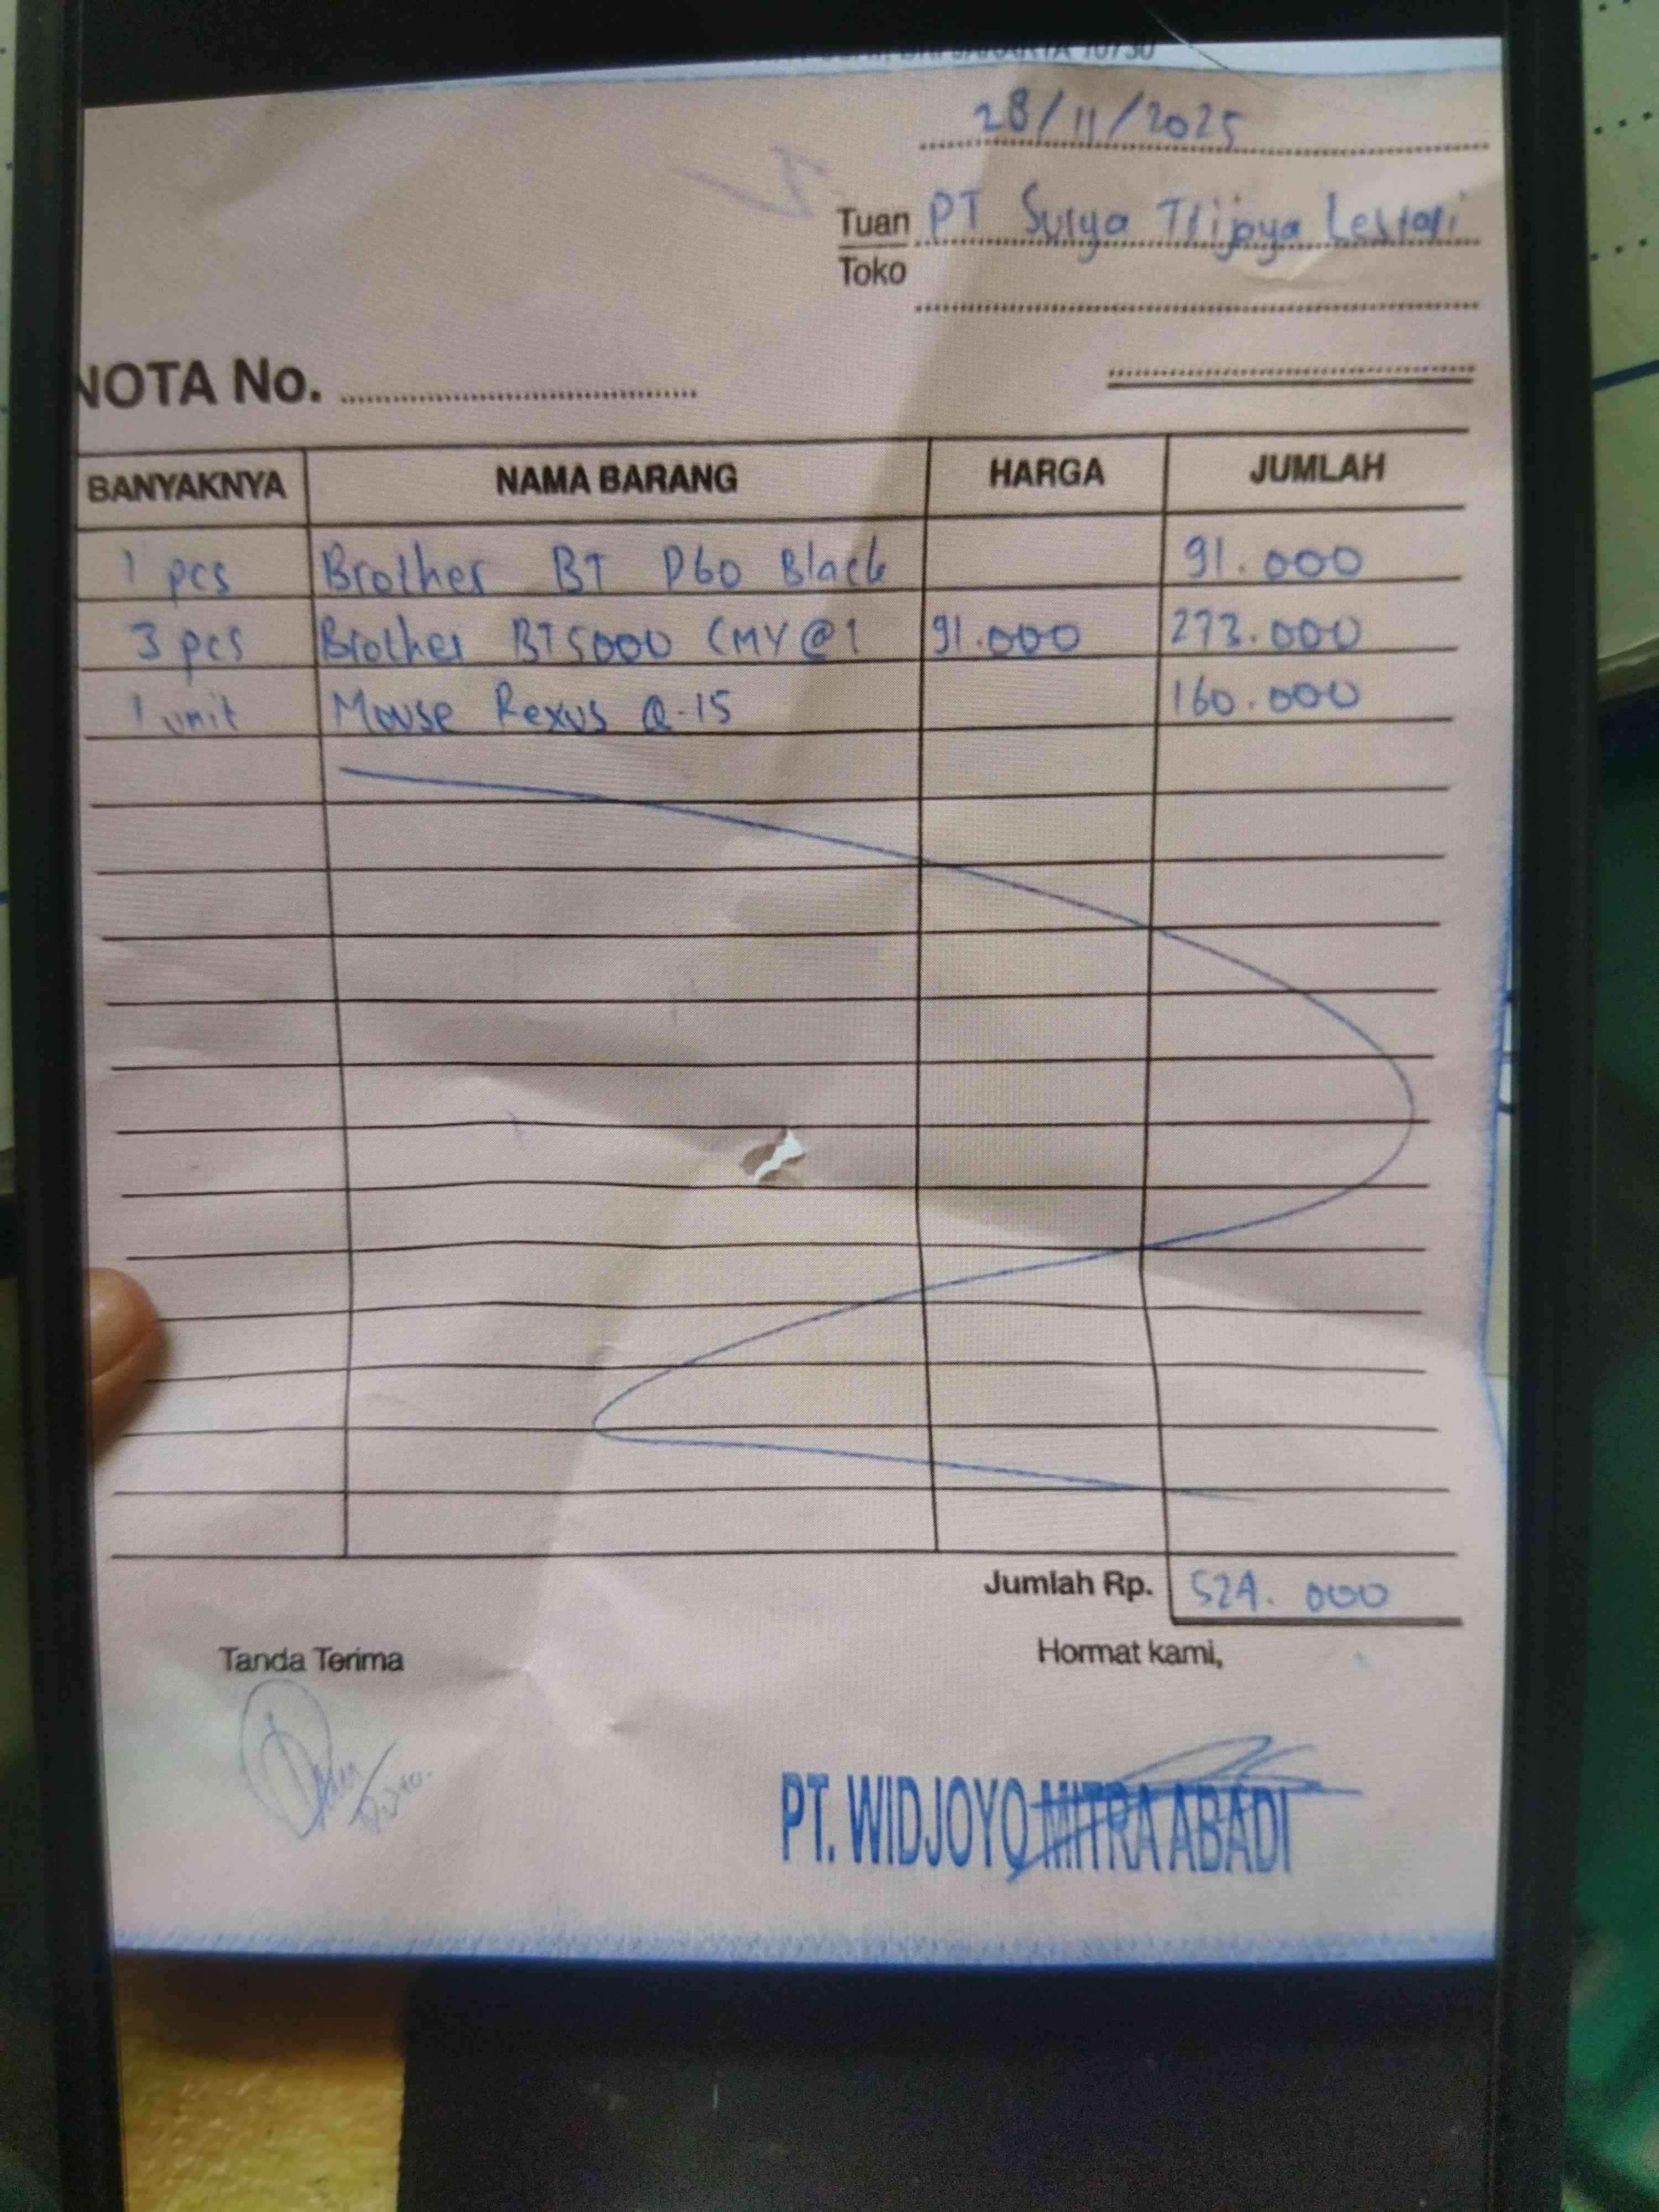 JAKARTA 10730
28/11/2025
Tuan PT Surya Trijaya Lestari
Toko
NOTA No.
BANYAKNYA NAMA BARANG HARGA JUMLAH
1 pcs Brother BT D60 Black 91.000
3 pcs Brother BT5000 CMY @1 91.000 273.000
1 unit Mouse Rexus Q-15 160.000
Jumlah Rp. 524.000
Tanda Terima Hormat kami,
PT. WIDJOYO MITRA ABADI